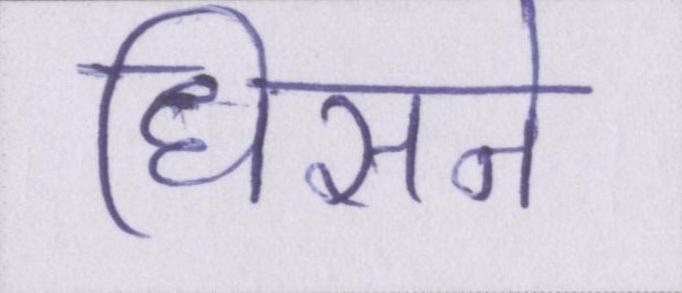 घिसने